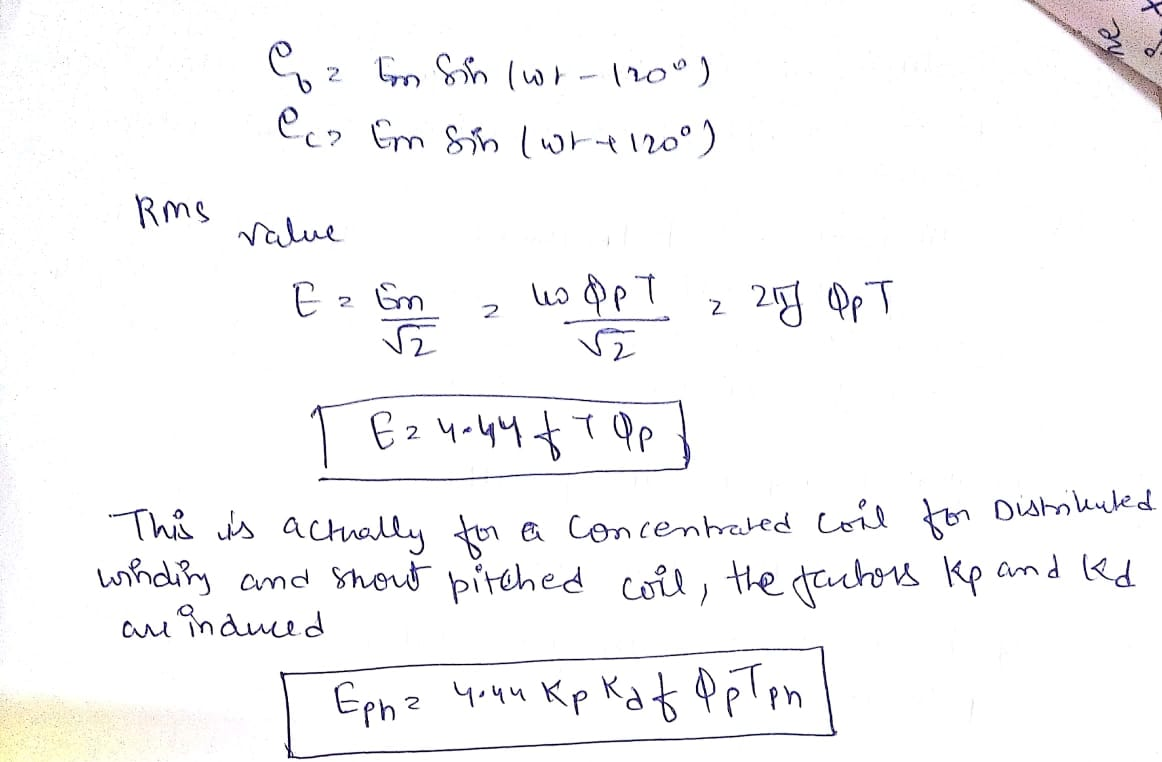 e_b = Em Sin (ωt - 120°)
e_c = Em Sin (ωt + 120°)
Rms value
E = Em/√2 = ωΦpT/√2 = 2πf ΦpT
E = 4.44 f T Φp
This is actually for a Concentrated Coil for Distributed
winding and short pitched coil, the factors Kp and Kd
are induced
Eph = 4.44 Kp Kd f Φp Tph